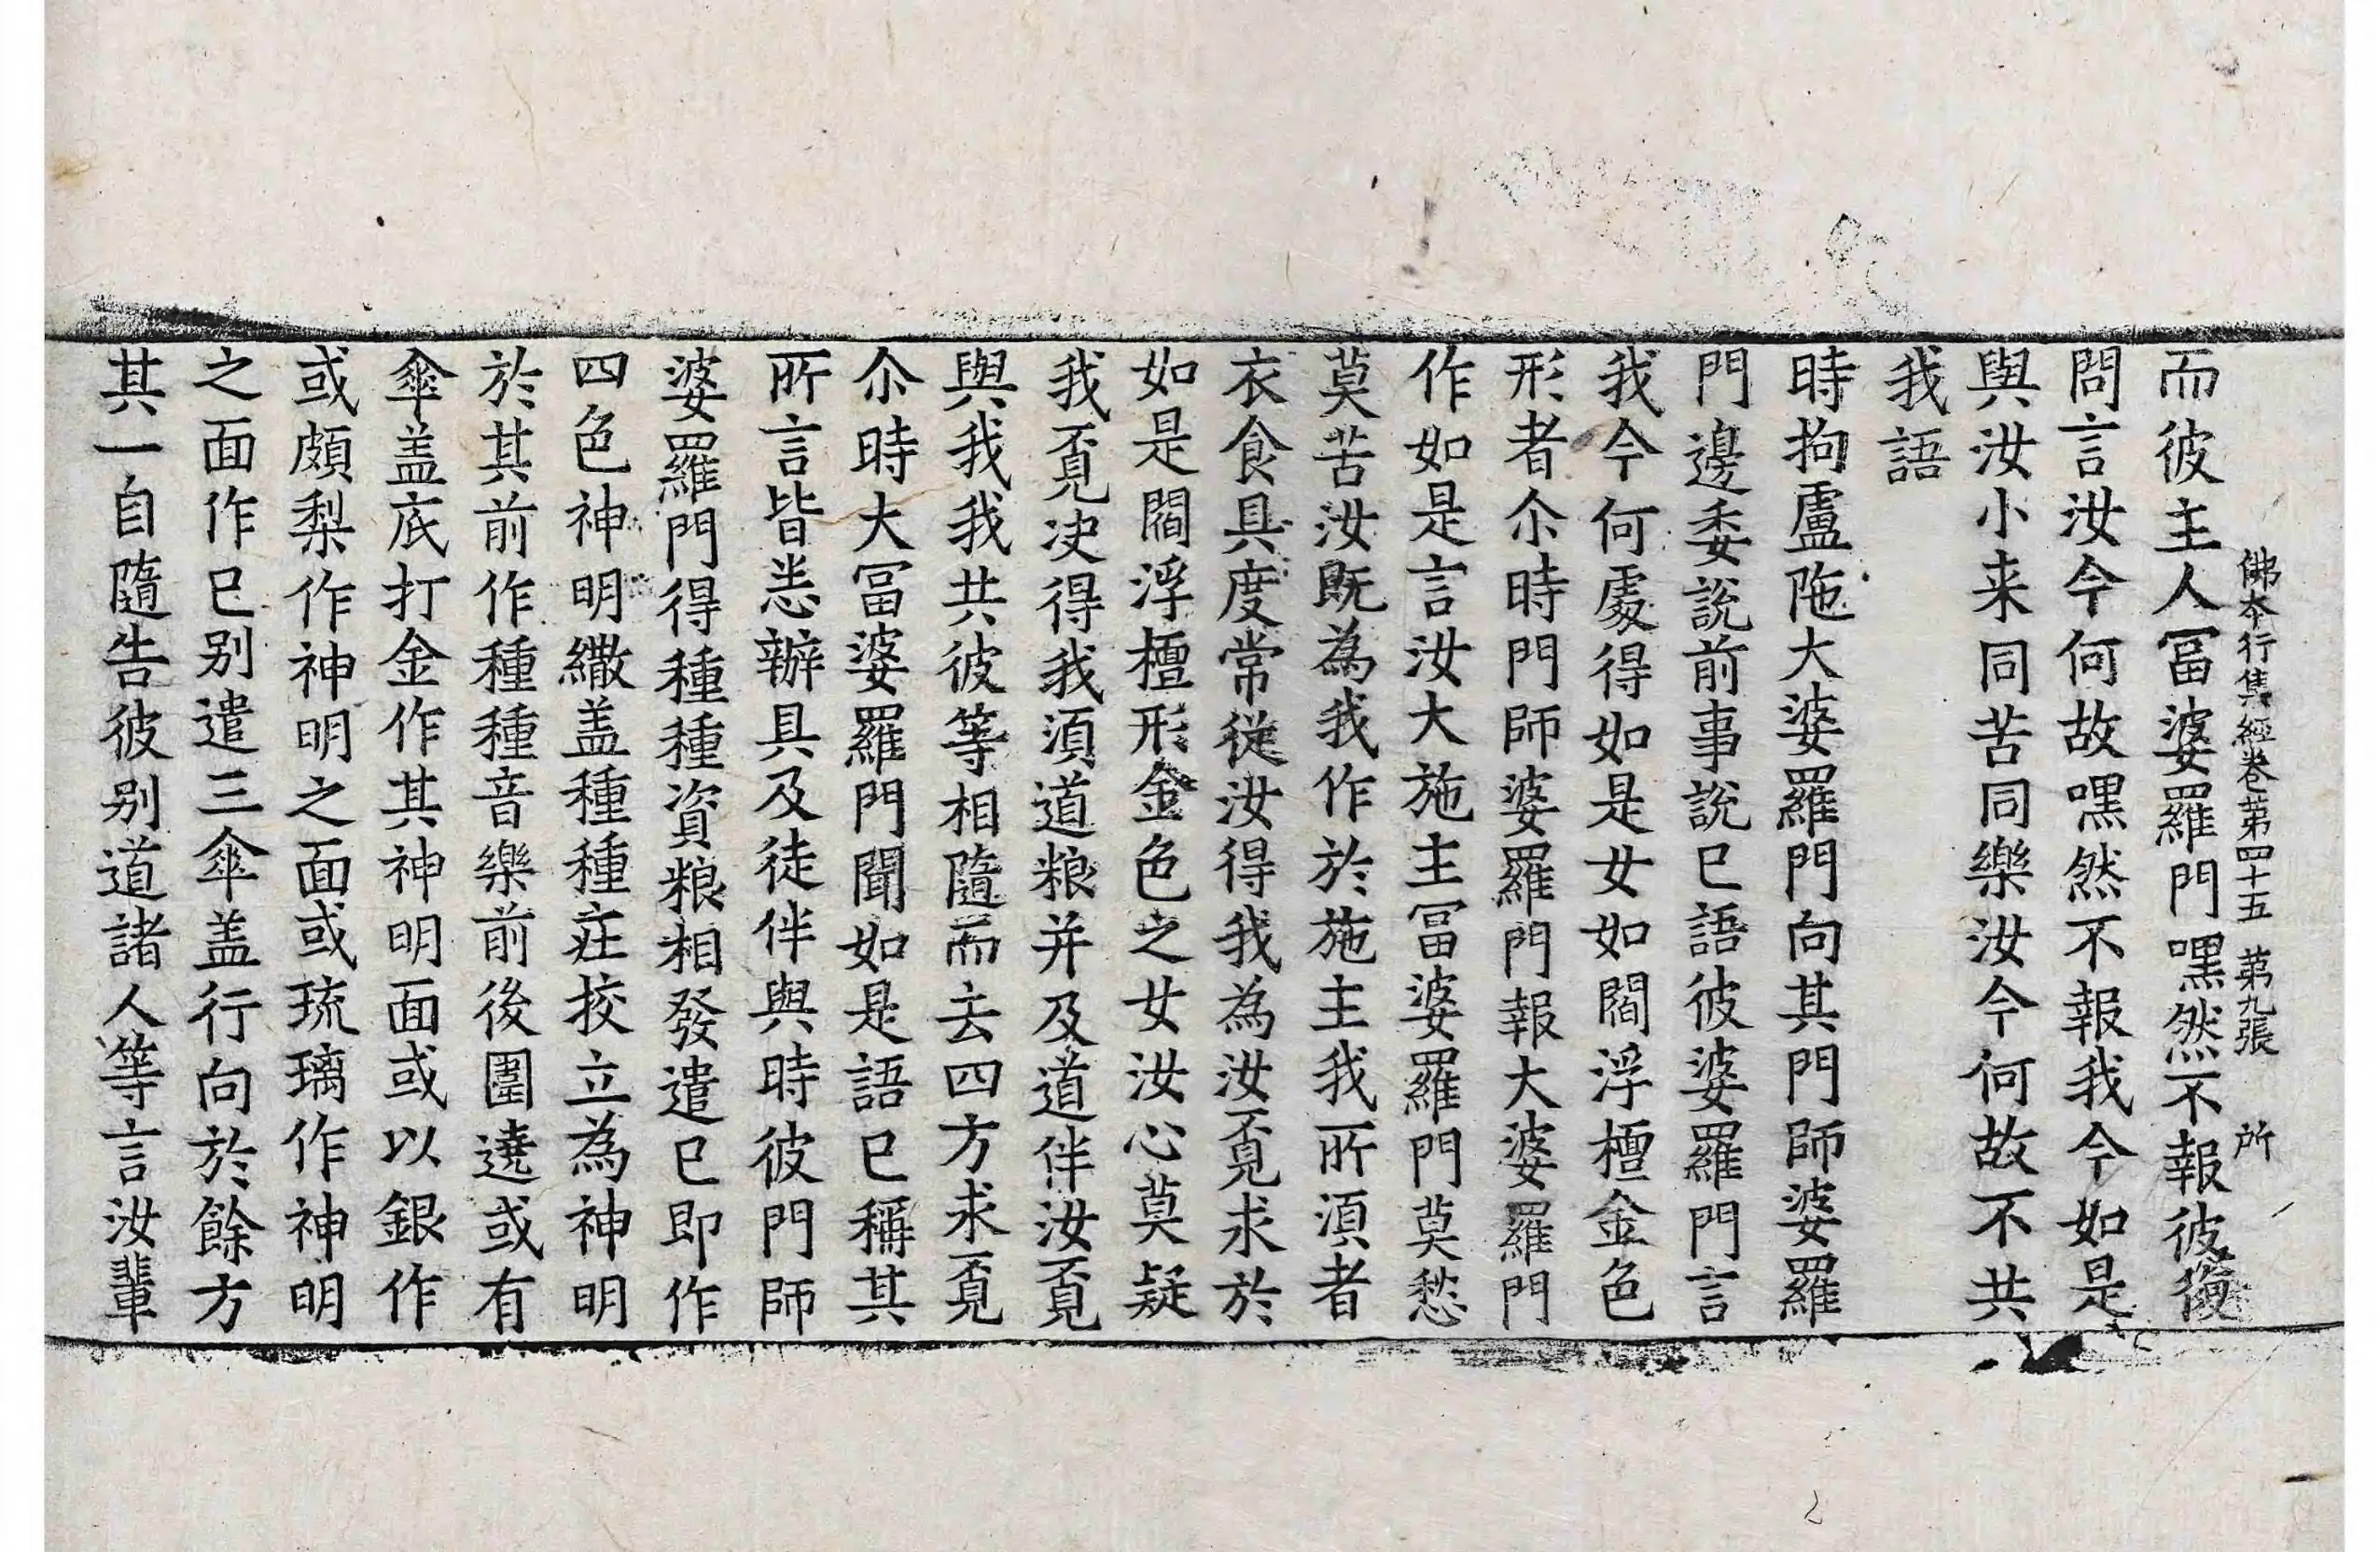 佛本行集經卷第四十五 第九張 所
而彼主人冨婆羅門嘿然不報彼復
問言汝今何故嘿然不報我今如是
與汝小来同苦同樂汝今何故不共
我語
時拘盧陁大婆羅門向其門師婆羅
門邊委説前事說已語彼婆羅門言
我今何處得如是女如閻浮檀金色
形者尒時門師婆羅門報大婆羅門
作如是言汝大施主冨婆羅門莫愁
莫苦汝既為我作於施主我所湏者
衣食具度常從汝得我為汝覔求於
如是閻浮檀形金色之女汝心莫疑
我覔决得我湏道粮并及道伴汝覔
與我我共彼等相隨而去四方求覔
尒時大冨婆羅門聞如是語已稱其
所言皆悉辦具及徒伴與時彼門師
婆羅門得種種資粮相發遣已即作
四色神明繖盖種種庄挍立為神明
於其前作種種音樂前後圍遶或有
傘盖底打金作其神明面或以銀作
或頗梨作神明之面或琉璃作神明
之面作已别遣三傘盖行向於餘方
其一自隨告彼别道諸人等言汝輩